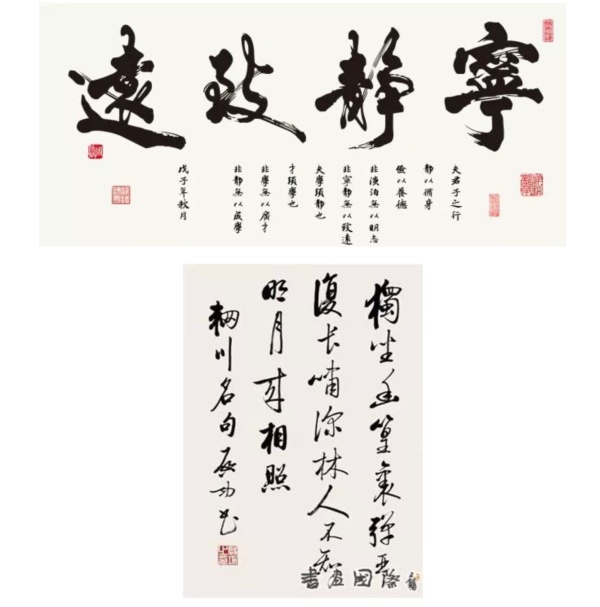 寧靜致遠
夫君子之行
靜以脩身
儉以養德
非淡泊無以明志
非寧靜無以致遠
夫學須靜也
才須學也
非學無以廣才
非靜無以成學
戊子年秋月
獨坐幽篁裏彈琴
復长嘯深林人不知
明月来相照
輞川名句啟功书
書畫國際